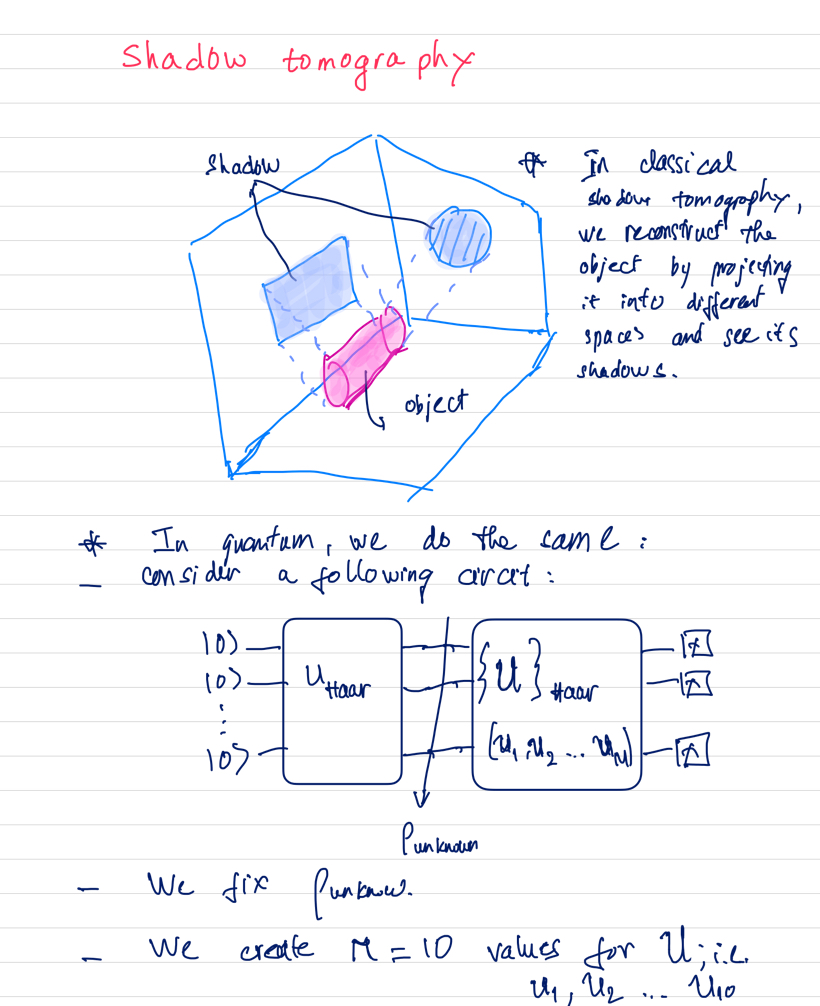 Shadow tomography
Shadow
* In classical
shadow tomography,
we reconstruct the
object by projecting
it into different
spaces and see its
shadows.
object
* In quantum, we do the same :
— consider a following circit :
|0⟩
U_Haar
{U}_Haar
|0⟩
⋮
|0⟩
(U₁, U₂ ... U_M)
ρ_unknown
— We fix ρ_unknow.
— We create M = 10 values for U; i.e.
U₁, U₂ ... U₁₀